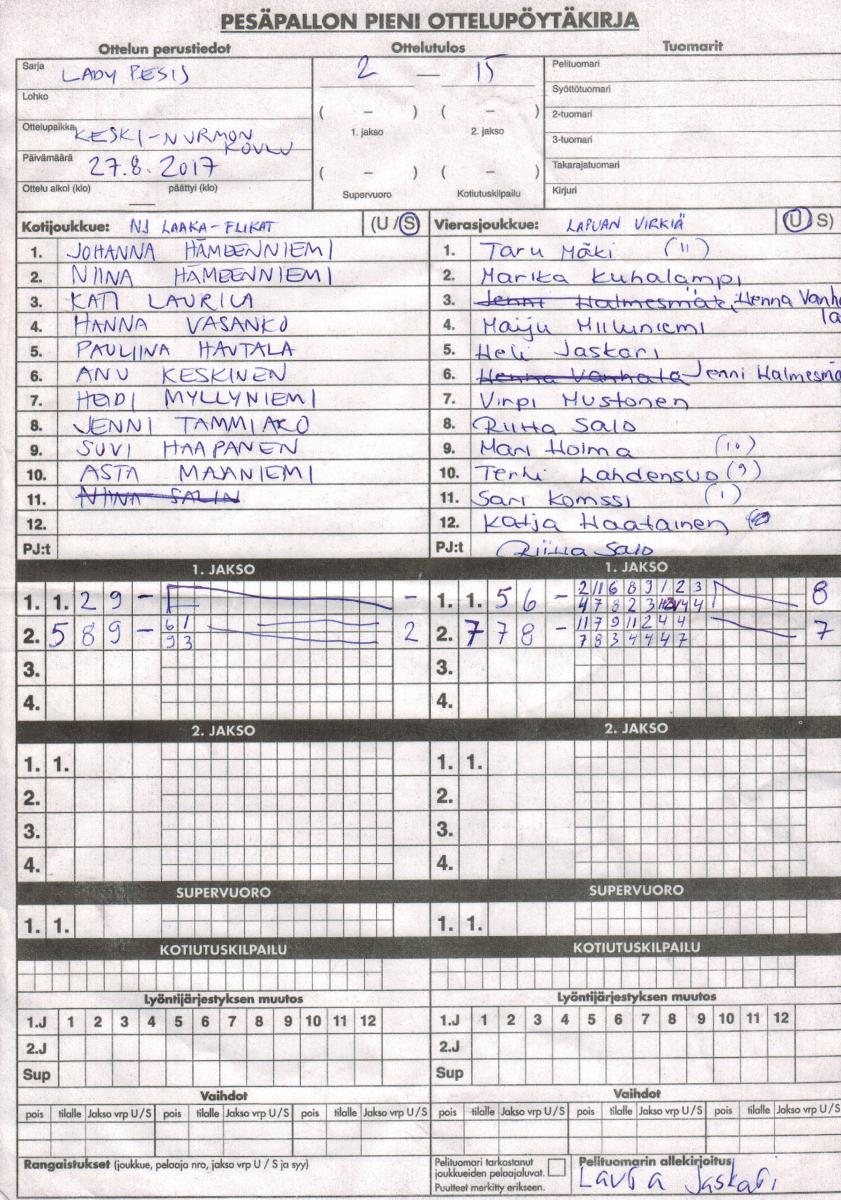 PESÄPALLON PIENI OTTELUPÖYTÄKIRJA
Ottelun perustiedot
Sarja LADY PESIS
Lohko
Ottelupaikka KESKI-NURMON KOULU
Päivämäärä 27.8.2017
Ottelu alkoi (klo) päättyi (klo)
Ottelutulos
2 — 15
( – ) ( – )
1. jakso 2. jakso
( – ) ( – )
Supervuoro Kotiutuskilpailu
Tuomarit
Pelituomari
Syöttötuomari
2-tuomari
3-tuomari
Takarajatuomari
Kirjuri
Kotijoukkue: NJ LAAKA-FLIKAT (U/S)
1. JOHANNA HÄMEENNIEMI
2. NIINA HÄMEENNIEMI
3. KATI LAURILA
4. HANNA VASANKO
5. PAULIINA HAUTALA
6. ANU KESKINEN
7. HEIDI MYLLYNIEMI
8. JENNI TAMMIAKO
9. SUVI HAAPANEN
10. ASTA MAANIEMI
11. NIINA SALIN
12.
PJ:t
Vierasjoukkue: LAPUAN VIRKIÄ (U/S)
1. Taru Mäki (11)
2. Marika Kuhalampi
3. Jenni Halmesmäki Henna Vanhala
4. Maiju Miiluniemi
5. Heli Jaskari
6. Henna Vanhala Jenni Halmesmä
7. Virpi Mustonen
8. Riitta Salo
9. Mari Hoima (10)
10. Terhi Lahdensuo (9)
11. Sari Komssi (1)
12. Katja Haatainen
PJ:t Riitta Salo
1. JAKSO
1. 1. 2 9 – –
2. 5 8 9 – 6 1 2
9 3
3.
4.
1. JAKSO
1. 1. 5 6 – 2 11 6 8 9 1 2 3 8
4 7 8 2 3 4 4
2. 7 7 8 – 11 7 9 11 2 4 4 7
7 8 3 4 4 4 7
3.
4.
2. JAKSO
1. 1.
2.
3.
4.
2. JAKSO
1. 1.
2.
3.
4.
SUPERVUORO
1. 1.
SUPERVUORO
1. 1.
KOTIUTUSKILPAILU
KOTIUTUSKILPAILU
Lyöntijärjestyksen muutos
1.J 1 2 3 4 5 6 7 8 9 10 11 12
2.J
Sup
Lyöntijärjestyksen muutos
1.J 1 2 3 4 5 6 7 8 9 10 11 12
2.J
Sup
Vaihdot
pois tilalle Jakso vrp U/S pois tilalle Jakso vrp U/S pois tilalle Jakso vrp U/S
Vaihdot
pois tilalle Jakso vrp U/S pois tilalle Jakso vrp U/S pois tilalle Jakso vrp U/S
Rangaistukset (joukkue, pelaaja nro, jakso vrp U / S ja syy)
Pelituomari tarkastanut
joukkueiden pelaajaluvat.
Puutteet merkitty erikseen.
Pelituomarin allekirjoitus
Laura Jaskari